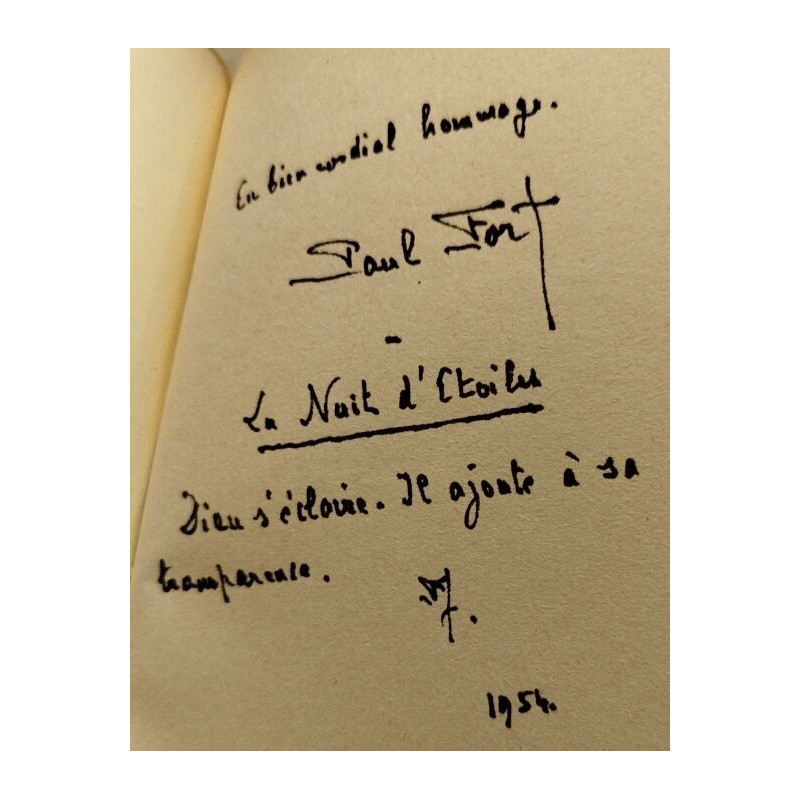 En bien cordial hommage.
Paul Fort
-
La Nuit d'Etoiles
Dieu s'éclaire. Il ajoute à sa
transparence.
F.
1954.